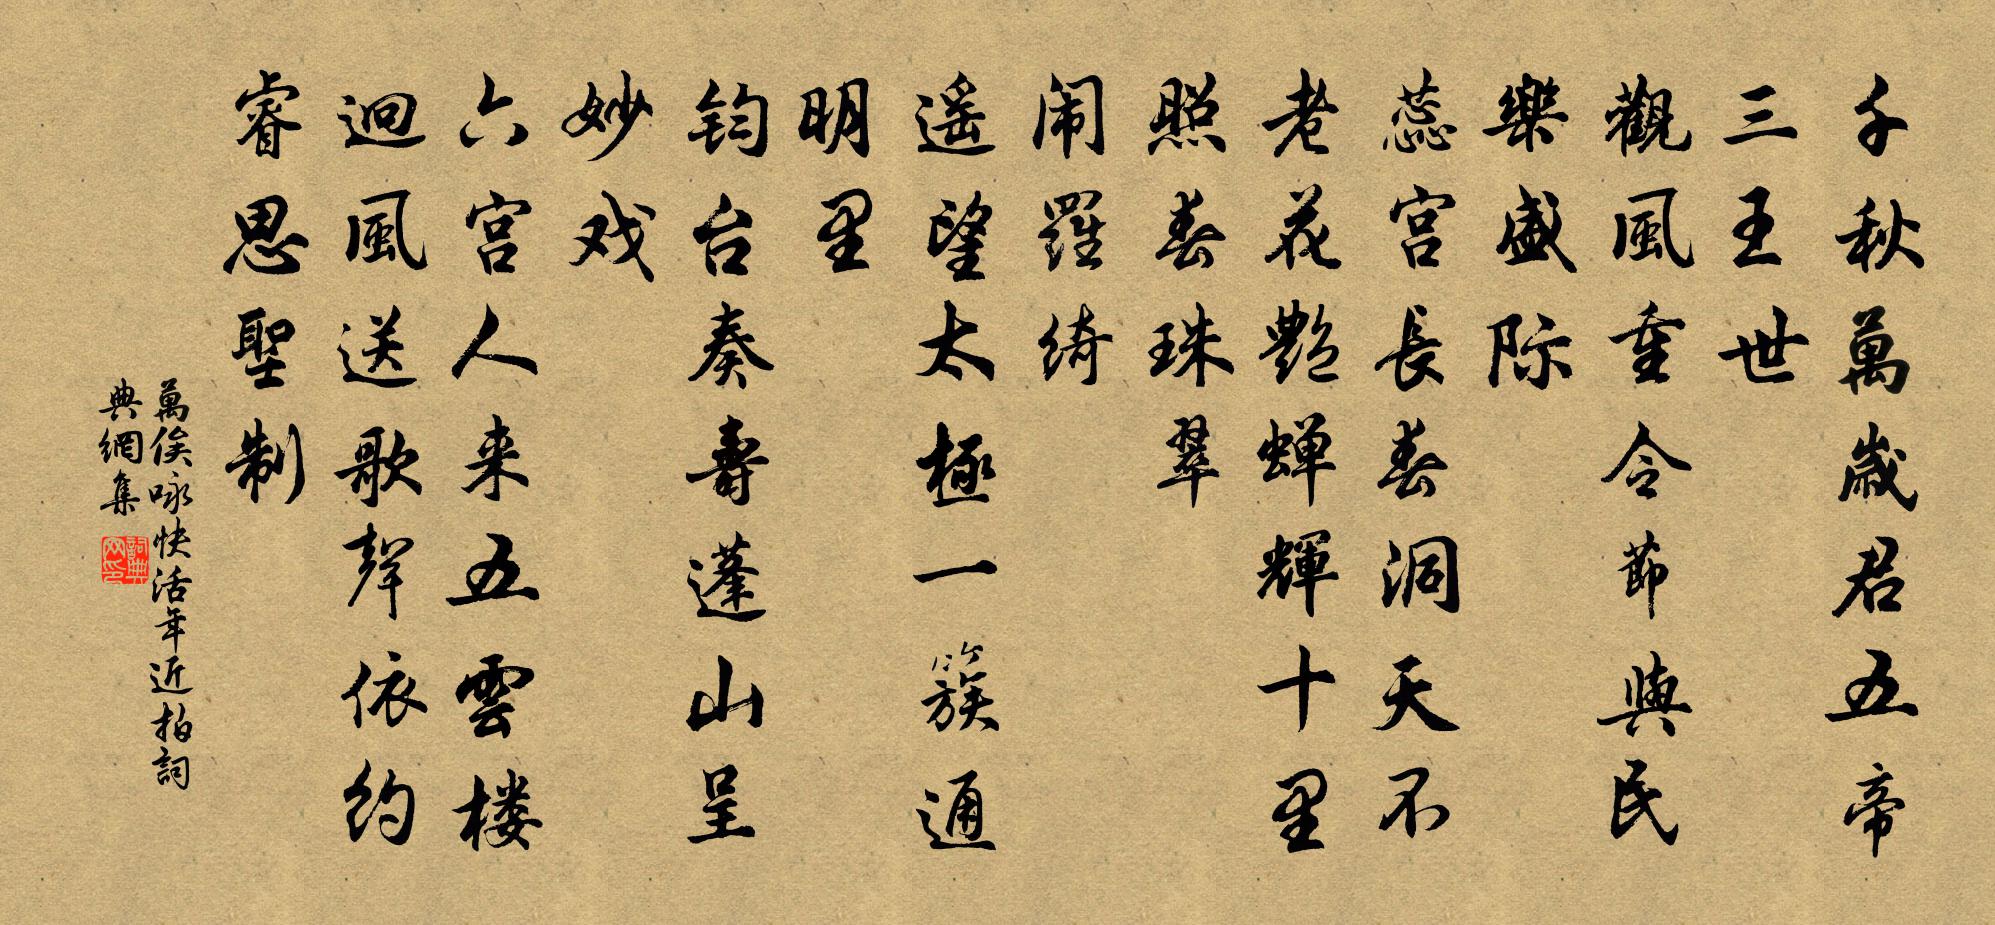 千秋萬歲君五帝
三王世
觀風重令節與民
樂盛际
蕊宫長春洞天不
老花艷蝉輝十里
照春珠翠
闹羅綺
遥望太極一簇通
明里
钧台奏壽蓬山呈
妙戏
六宫人来五雲楼
迥風送歌聲依约
睿思聖制
萬俟咏快活年近拍詞
典網集
詞典网印